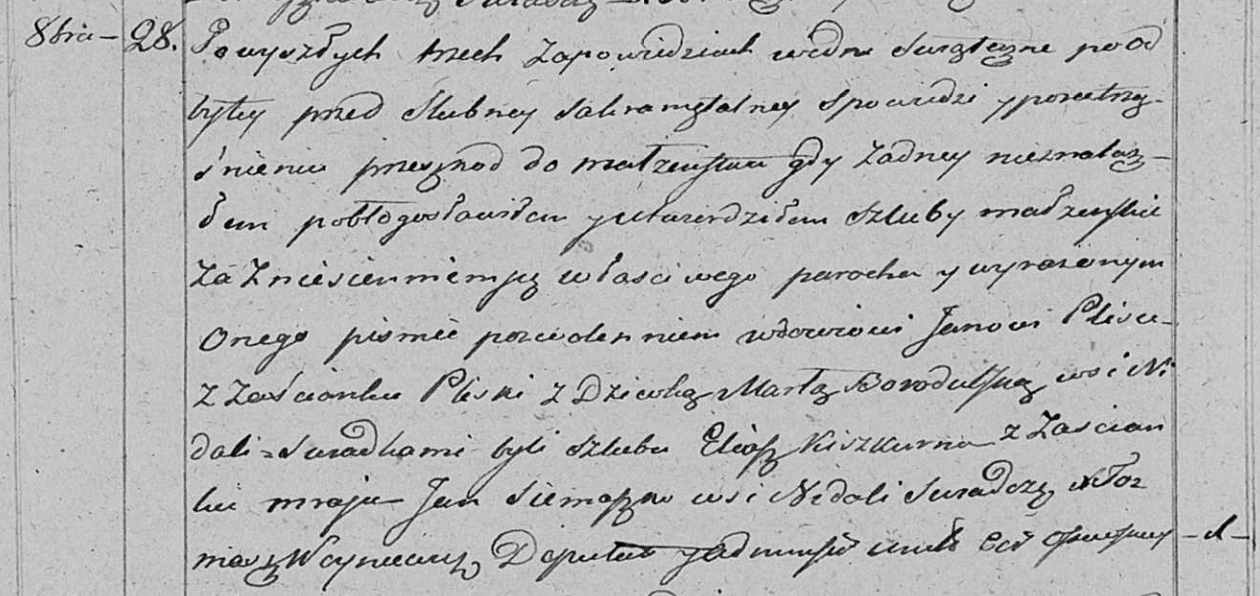 8bra – 28. Po wyszłych trzech Zapowiedziach w dni Swiąteczne po od
bytey przed Slubney Sakramętalney Spowiedzi y po roztrzą-
śnieniu przeszkod do małżeństwa gdy żadney nieznalaz-
łem pobłogosławiłem y utwierdziłem Szluby małżeńskie
Za Zniesieniem się własciwego parocha y wyrażonym
Onego pismie pozwoleniem wdowcowi Janowi Plisce
z Zaścianku Pliski z Dziewką Martą Borodulską wsi Ni
dali = Swiadkami byli szlubu Eliasz Kiszkurna z Zascian
ku mraju Jan Siemaszko wsi Nidali Swiadczę X Tor
masz Woyniewicz Deputat y admini
– d –